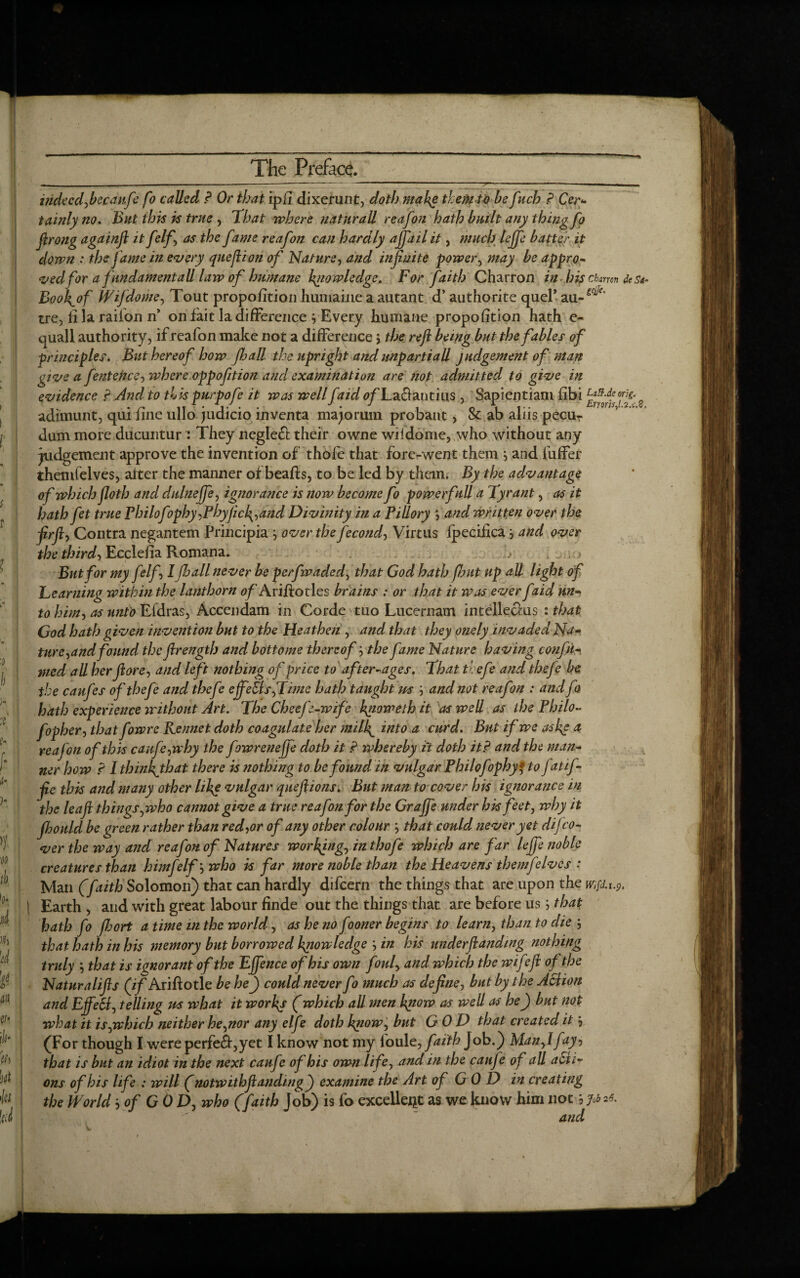 The Preface.
indeed,becauſe ſo called ? Or that ipſi dixerunt, doth make them to be ſuch ? Cer-
tainly no. But this is true , That where naturall reaſon hath built any thing ſo
ſtrong againſt it ſelf, as the ſame reaſon can hardly aſſail it , much leſſe batter it
down : the ſame in every queſtion of Nature, and infinite power, may be appro-
ved for a fundamentall law of humane knowledge. For faith Charron in his Charron de Sa-
Book of Wiſdome, Tout propoſition humaine a autant d' authorite quel' au- geſſe.
tre, ſi la raiſon n' on fait la difference ; Every humane propoſition hath e-
quall authority, if reaſon make not a difference ; the reſt being but the fables of
principles. But hereof how ſhall the upright and unpartiall judgement of man
give a ſentence, where oppoſition and examination are not admitted to give in
evidence ? And to this purpoſe it was well ſaid of Lactantius , Sapientiam ſibi Lact.de orig.
adimunt, qui ſine ullo judicio inventa majorum probant , & ab aliis pecu- Erroris,l.2.c.8.
dum more ducuntur : They neglect their owne wiſdome, who without any
judgement approve the invention of thoſe that fore-went them ; and ſuffer
themſelves, after the manner of beaſts, to be led by them. By the advantage
of which ſloth and dulneſſe, ignorance is now become ſo powerfull a Tyrant , as it
hath ſet true Philoſophy,Phyſick,and Divinity in a Pillory ; and written over the
firſt, Contra negantem Principia ; over the ſecond, Virtus ſpecifica ; and over
the third, Eccleſia Romana.
But for my ſelf, I ſhall never be perſwaded, that God hath ſhut up all light of
Learning within the lanthorn of Ariſtotles brains : or that it was ever ſaid un-
to him, as unto Eſdras, Accendam in Corde tuo Lucernam intellectus : that
God hath given invention but to the Heathen , and that they onely invaded Na-
ture,and found the ſtrength and bottome thereof ; the ſame Nature having conſu-
med all her ſtore, and left nothing of price to after-ages. That theſe and theſe be
the cauſes of theſe and theſe effects,Time hath taught us ; and not reaſon : and ſo
hath experience without Art. The Cheeſe-wife knoweth it as well as the Philo-
ſopher, that ſowre Rennet doth coagulate her milk into a curd. But if we aske a
reaſon of this cauſe,why the ſowreneſſe doth it ? whereby it doth it? and the man-
ner how ? I think that there is nothing to be found in vulgar Philoſophy, to ſatiſ-
fie this and many other like vulgar queſtions. But man to cover his ignorance in
the leaſt things,who cannot give a true reaſon for the Graſſe under his feet, why it
ſhould be green rather than red,or of any other colour ; that could never yet diſco-
ver the way and reaſon of Natures working, in thoſe which are far leſſe noble
creatures than himſelf ; who is far more noble than the Heavens themſelves :
Man (ſaith Solomon) that can hardly diſcern the things that are upon the Wiſd.1.9.
Earth , and with great labour finde out the things that are before us ; that
hath ſo ſhort a time in the world , as he no ſooner begins to learn, than to die ;
that hath in his memory but borrowed knowledge ; in his underſtanding nothing
truly ; that is ignorant of the Eſſence of his own ſoul, and which the wiſeſt of the
Naturaliſts (if Ariſtotle be he) could never ſo much as define, but by the Action
and Effect, telling us what it works (which all men know as well as he) but not
what it is,which neither he,nor any elſe doth know, but G O D that created it ;
(For though I were perfect,yet I know not my ſoule, ſaith Job.) Man,I ſay,
that is but an idiot in the next cauſe of his own life, and in the cauſe of all acti-
ons of his life : will (notwithſtanding) examine the Art of G O D in creating
the World ; of G O D, who (ſaith Job) is ſo excellent as we know him not ; Job 26.
and